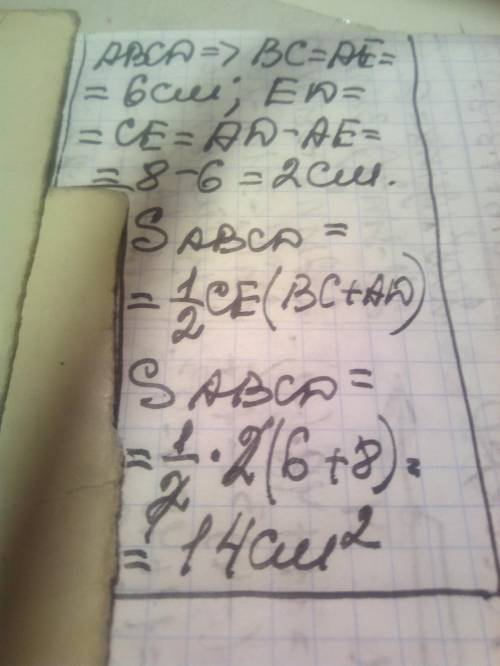 ABCD => BC=AE=
= 6см; ED=
= CE = AD - AE=
= 8-6 = 2см.
S ABCD =
= 1/2 CE(BC+AD)
S ABCD =
= 1/2 · 2(6+8)=
= 14см²